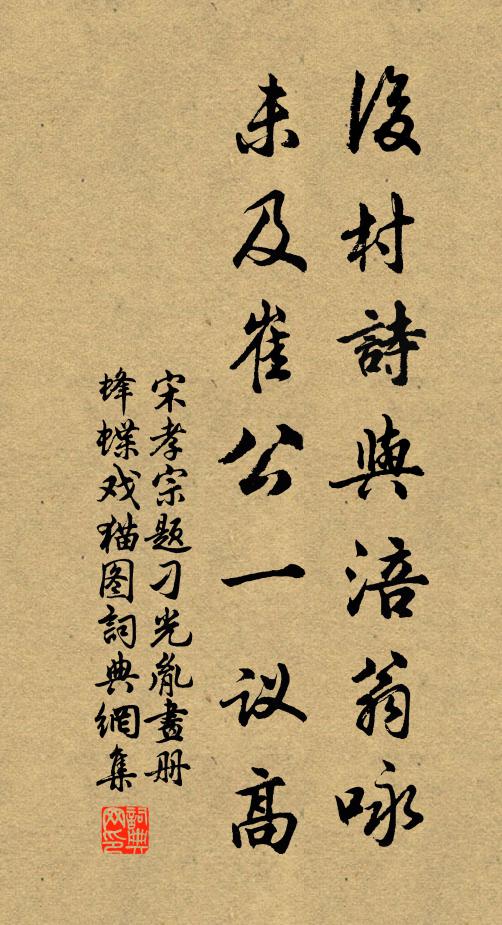 後村詩與涪翁咏
未及崔公一议高
宋孝宗题刁光胤畫册
蜂蝶戏猫图詞典網集
詞典网印